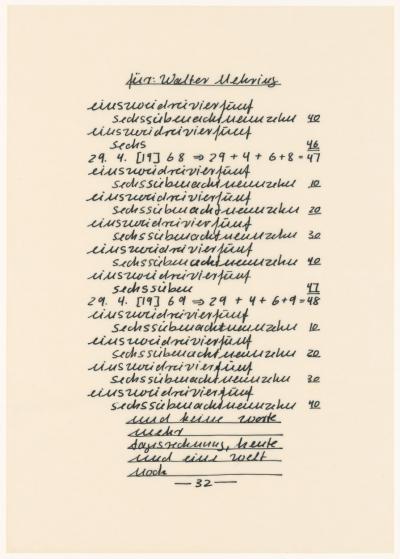 für: Walter Mehring
einszweidreivierfünf
sechssiebenachtneunzehn 40
einszweidreivierfünf
sechs 46
29. 4. [19] 68 ⇒ 29 + 4 + 6+8 = 47
einszweidreivierfünf
sechssiebenachtneunzehn 10
einszweidreivierfünf
sechssiebenachtneunzehn 20
einszweidreivierfünf
sechssiebenachtneunzehn 30
einszweidreivierfünf
sechssiebenachtneunzehn 40
einszweidreivierfünf
sechssieben 47
29. 4. [19] 69 ⇒ 29 + 4 + 6+9 = 48
einszweidreivierfünf
sechssiebenachtneunzehn 10
einszweidreivierfünf
sechssiebenachtneunzehn 20
einszweidreivierfünf
sechssiebenachtneunzehn 30
einszweidreivierfünf
sechssiebenachtneunzehn 40
und keine worte
mehr
tagesrechnung, heute
und eine welt
noch
— 32 —